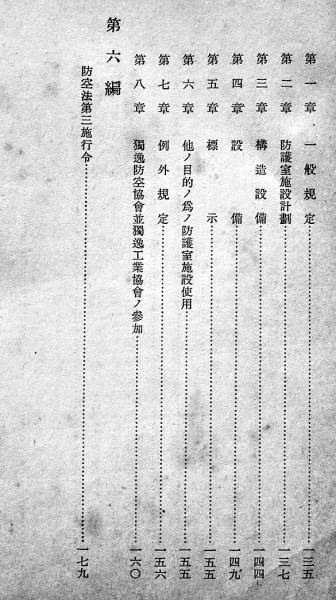 第一章 一般規定……一三五
第二章 防護室施設計劃……一三七
第三章 構造設備……一四四
第四章 設備……一四九
第五章 標示……一五五
第六章 他ノ目的ノ爲ノ防護室施設使用……一五五
第七章 例外規定……一五六
第八章 獨逸防空協會並獨逸工業協會ノ參加……一六〇
第六編
防空法第三施行令……一七九